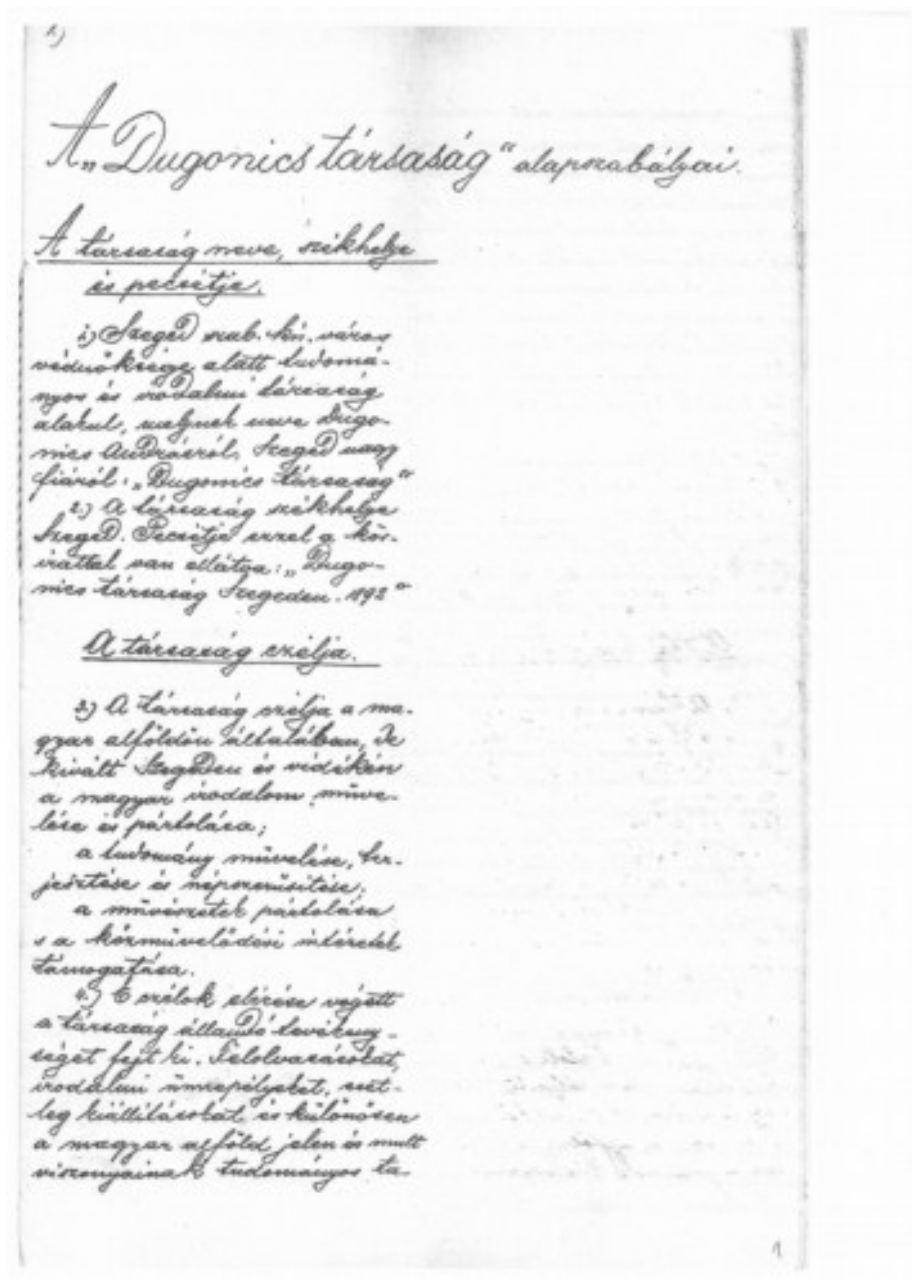 A „Dugonics társaság“ alapszabályai.
A társaság neve, székhelye
és pecsétje.
1.) Szeged szab. kir. város
védnöksége alatt tudomá-
nyos és irodalmi társaság
alakul, melynek neve Dugo-
nics Andrásról, Szeged nagy
fiáról: „Dugonics társaság“
2.) A társaság székhelye
Szeged. Pecsétje ezzel a kör-
irattal van ellátva: „Dugo-
nics társaság Szegeden. 1892“
A társaság czélja.
3.) A társaság czélja a ma-
gyar alföldön általában, de
kivált Szegeden és vidékén
a magyar irodalom müve-
lése és pártolása;
a tudomány müvelése, ter-
jesztése és népszerüsitése;
a müvészetek pártolása
s a közmüvelődési intézetek
támogatása.
4.) E czélok elérése végett
a társaság állandó tevékeny-
séget fejt ki. Felolvasásokat,
irodalmi ünnepélyeket, eset-
leg kiállitásokat és különösen
a magyar alföld jelen és mult
viszonyainak tudományos ta-
1